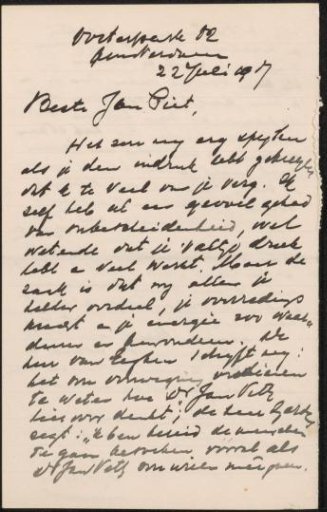 Oosterpark 82
Amsterdam
22 Juli 1917
Beste Jan Piet,
Het zou my erg spyten
als je den indruk hebt gekregen
dat ik te veel van je verg. Ik
zelf heb al een gevoel gehad
van onbescheidenheid, wel
wetende dat je valt druk
hebt en veel werkt. Maar de
zaak is dat wy allen je
helder oordeel, je overredings
kunst en je energie zoo waar
deeren en bewonderen. De
heer van Eeghen schryft my:
het om vernemen
te weten hoe Dr Jan Veth
hierover denkt; de heer
zegt: "Ik ben bereid de menschen
te gaan bezoeken, vooral als
Dr Jan Veth mee gaan.